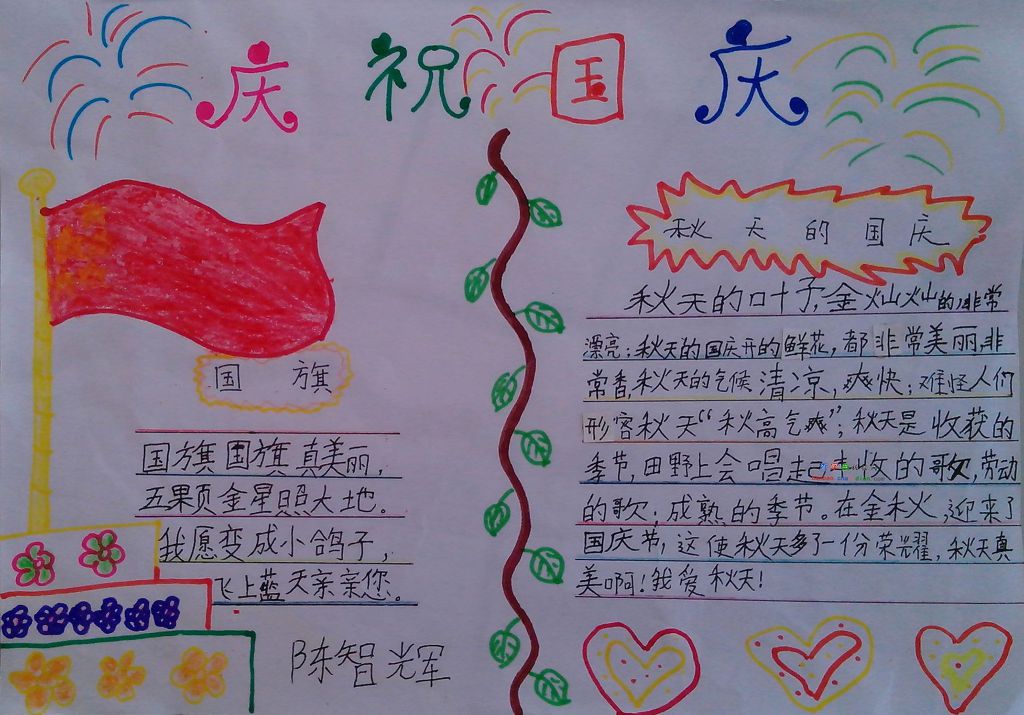 庆祝国庆
国旗
国旗国旗真美丽,
五果页金星照大地。
我愿变成小鸽子,
飞上蓝天亲亲您。
陈智辉
秋天的国庆
秋天的叶子,金灿灿的,非常
漂亮;秋天的国庆开的鲜花,都非常美丽,非
常香,秋天的气候清凉,爽快;难怪人们
形容秋天“秋高气爽”;秋天是收获的
季节,田野上会唱起丰收的歌,劳动
的歌;成熟的季节。在金秋,迎来了
国庆节,这使秋天多了一份荣耀,秋天真
美啊!我爱秋天!